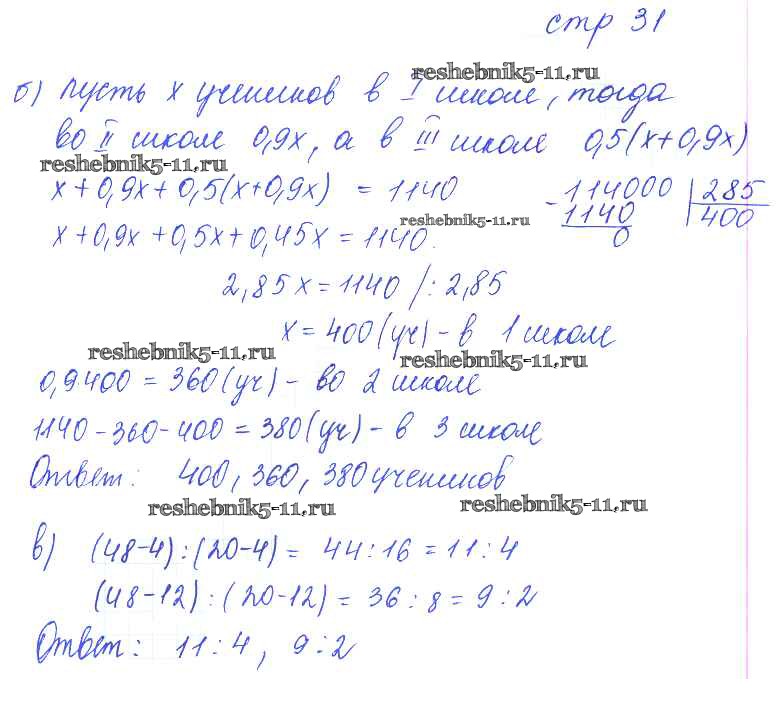 стр 31
reshebnik5-11.ru
б) пусть x учеников в I школе, тогда
во II школе 0,9x, а в III школе 0,5(x+0,9x)
reshebnik5-11.ru
x+0,9x+0,5(x+0,9x) = 1140
-114000 | 285
1140 400
0
reshebnik5-11.ru
x+0,9x+0,5x+0,45x=1140.
2,85x=1140 /:2,85
x=400(уч)-в 1 школе
reshebnik5-11.ru
reshebnik5-11.ru
0,9400=360(уч)-во 2 школе
1140-360-400=380(уч)-в 3 школе
Ответ: 400, 360, 380 учеников
reshebnik5-11.ru
reshebnik5-11.ru
в) (48-4):(20-4)= 44:16=11:4
(48-12):(20-12)=36:8=9:2
Ответ: 11:4, 9:2